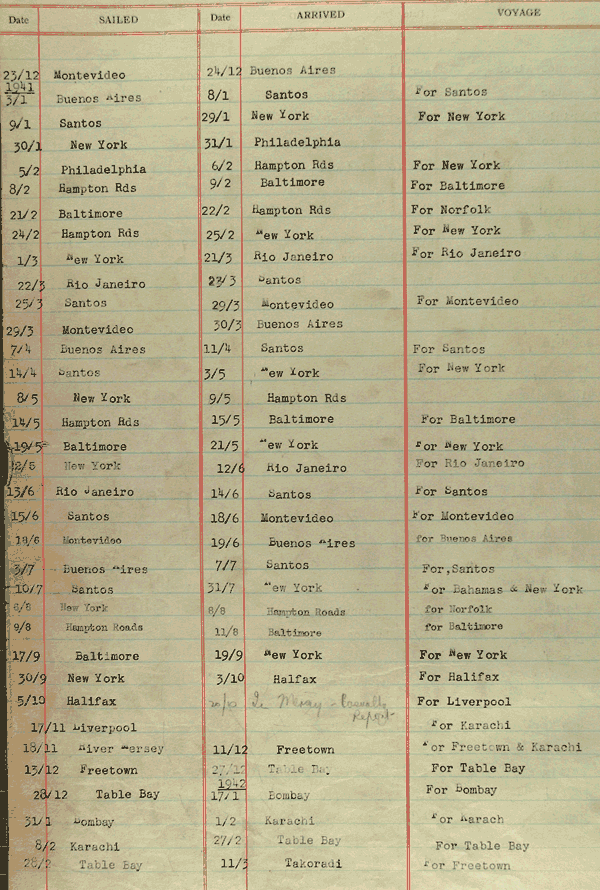 Date SAILED Date ARRIVED VOYAGE
23/12 Montevideo 24/12 Buenos Aires
1941
3/1 Buenos Aires 8/1 Santos For Santos
9/1 Santos 29/1 New York For New York
30/1 New York 31/1 Philadelphia
5/2 Philadelphia 6/2 Hampton Rds For New York
8/2 Hampton Rds 9/2 Baltimore For Baltimore
21/2 Baltimore 22/2 Hampton Rds For Norfolk
24/2 Hampton Rds 25/2 New York For New York
1/3 New York 21/3 Rio Janeiro For Rio Janeiro
22/3 Rio Janeiro 23/3 Santos
25/3 Santos 29/3 Montevideo For Montevideo
29/3 Montevideo 30/3 Buenos Aires
7/4 Buenos Aires 11/4 Santos For Santos
14/4 Santos 3/5 New York For New York
8/5 New York 9/5 Hampton Rds
14/5 Hampton Rds 15/5 Baltimore For Baltimore
19/5 Baltimore 21/5 New York For New York
New York 12/6 Rio Janeiro For Rio Janeiro
13/6 Rio Janeiro 14/6 Santos For Santos
15/6 Santos 18/6 Montevideo For Montevideo
Montevideo 19/6 Buenos Aires for Buenos Aires
3/7 Buenos Aires 7/7 Santos For,Santos
10/7 Santos 31/7 New York For Bahamas & New York
New York 8/8 Hampton Roads for Norfolk
9/8 Hampton Roads 11/8 Baltimore for Baltimore
17/9 Baltimore 19/9 New York For New York
30/9 New York 3/10 Halfax For Halifax
5/10 Halifax For Liverpool
Report
17/11 Liverpool For Karachi
18/11 River Mersey 11/12 Freetown For Freetown & Karachi
13/12 Freetown 27/12 Table Bay For Table Bay
1942
28/12 Table Bay 17/1 Bombay For Bombay
31/1 Bombay 1/2 Karachi For Karach
8/2 Karachi 27/2 Table Bay For Table Bay
28/2 Table Bay 11/3 Takoradi For Freetown